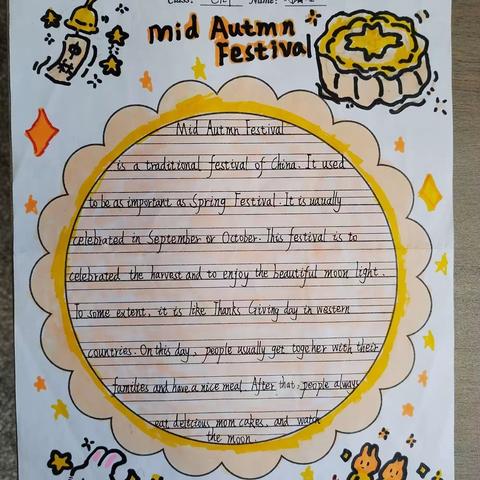 Class: Name:
Mid Autmn
Festival
中
秋
Mid Autmn Festival
is a traditional festival of China. It used
to be as important as Spring Festival. It is usually
celebrated in September or October. This festival is to
celebrated the harvest and to enjoy the beautiful moon light.
To some extent, it is like Thanks Giving day in western
countries. On this day, people usually get together with their
families and have a nice meal. After that, people always
eat delicious mom cakes, and watch
the moon.